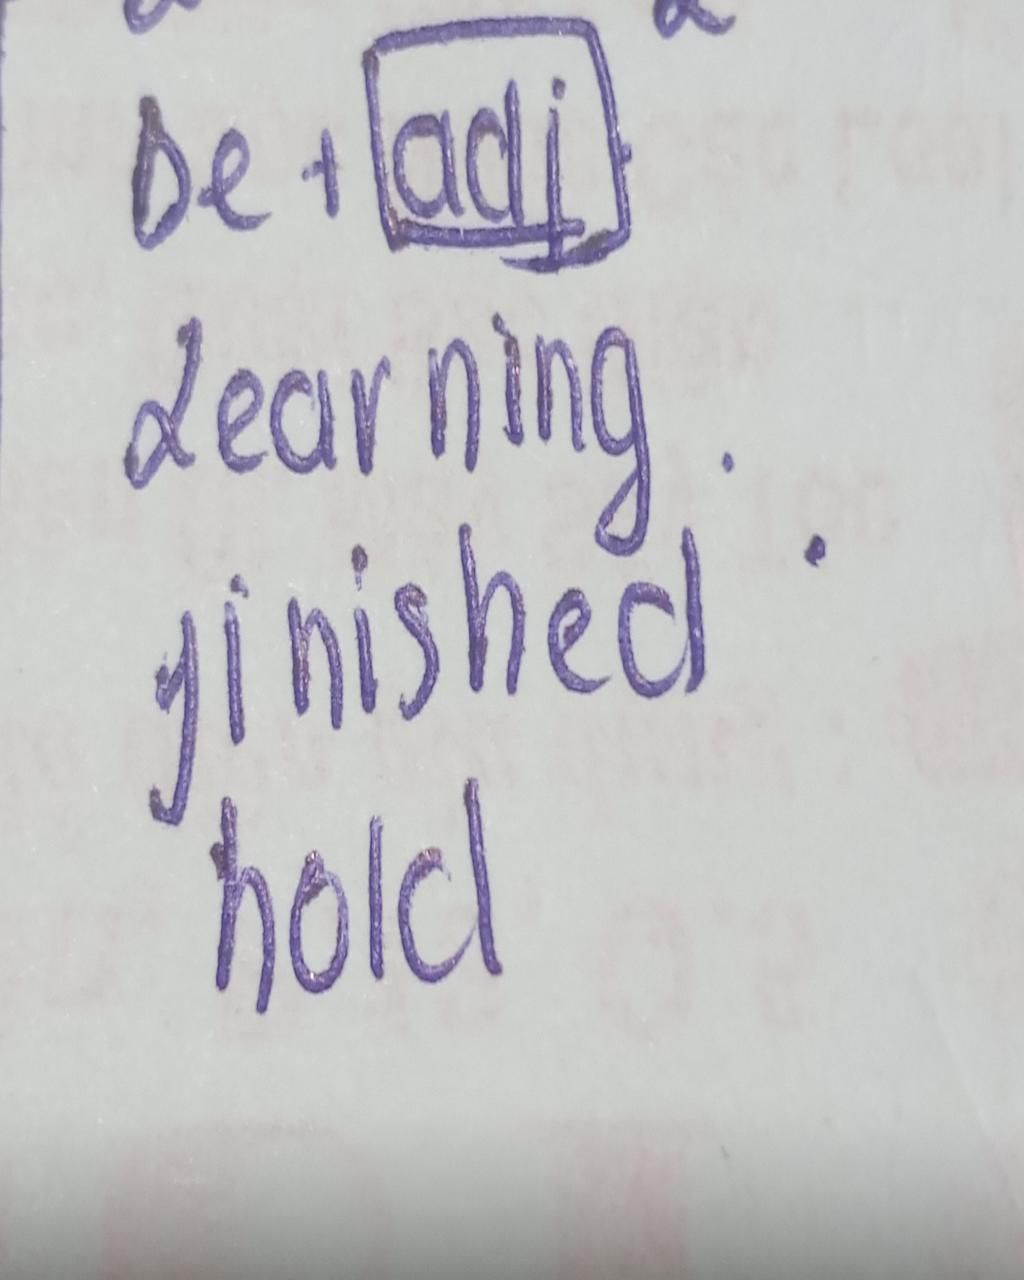 be + adj
Learning.
finished
hold